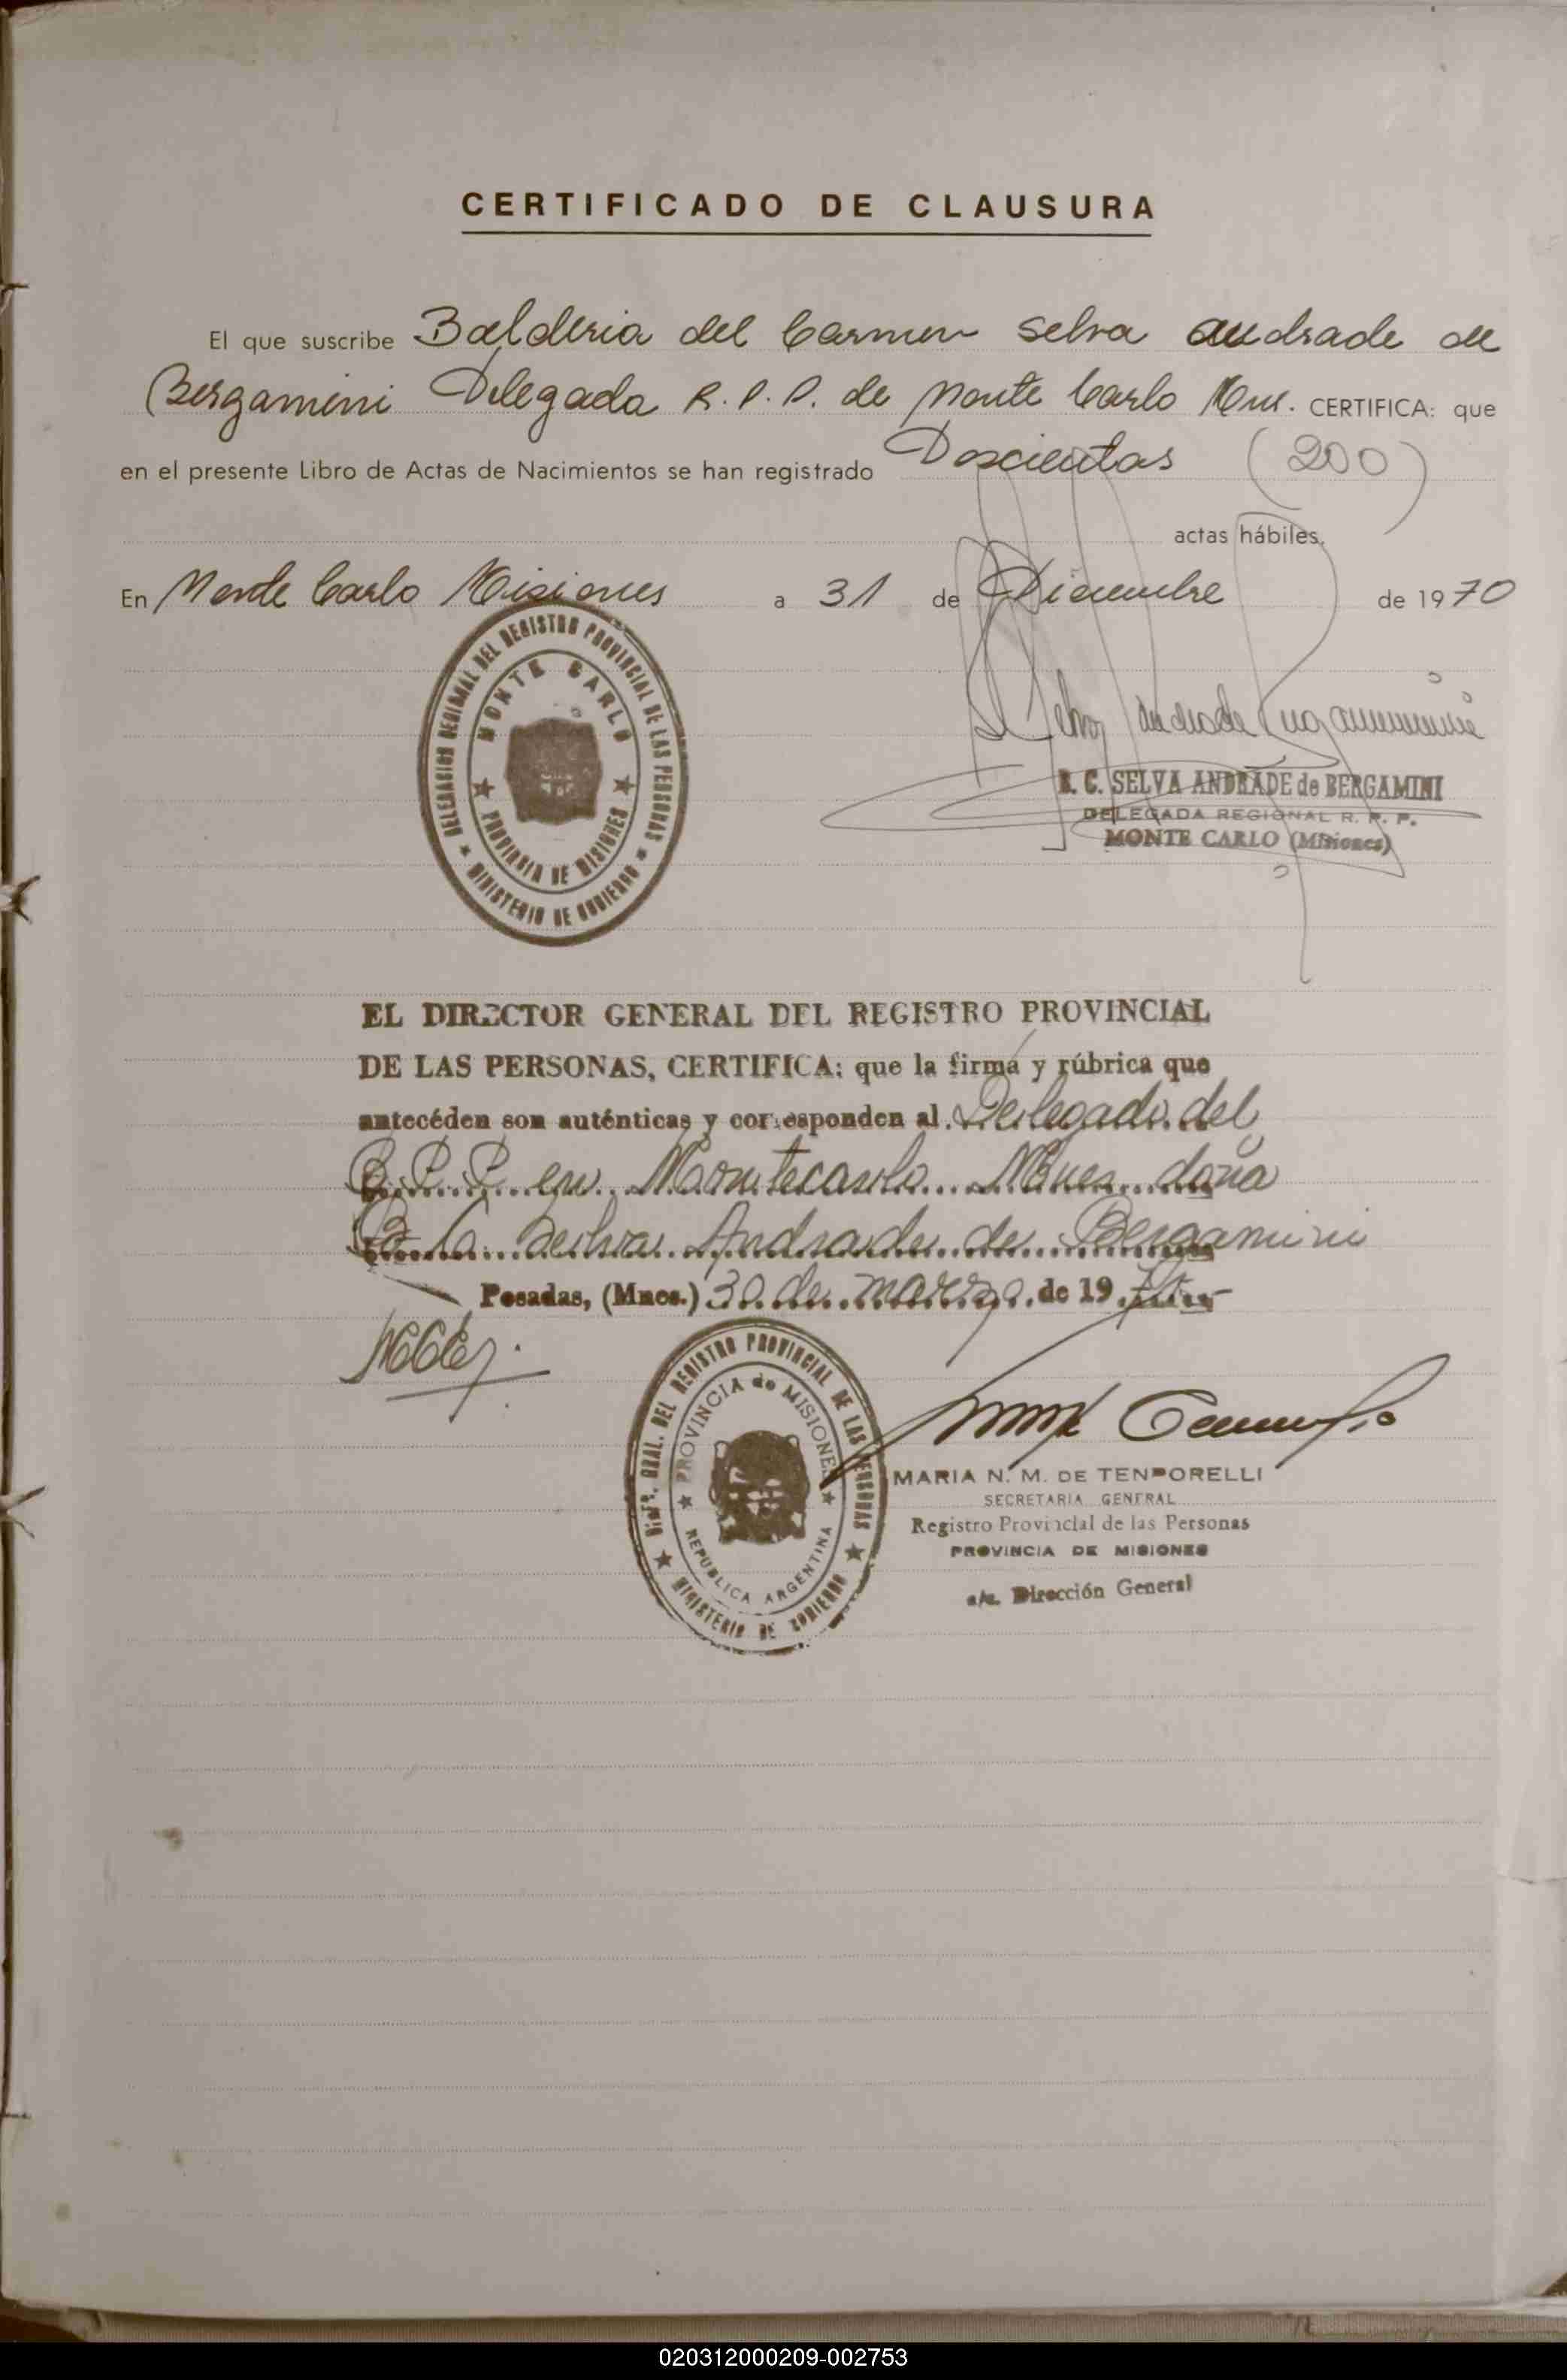 CERTIFICADO DE CLAUSURA
El que suscribe Balderia del Carmen Selva Andrade de
Bergamini Delegada R.P.P. de Monte Carlo Mnes. CERTIFICA: que
en el presente Libro de Actas de Nacimientos se han registrado Doscientas (200)
actas hábiles.
En Monte Carlo Misiones a 31 de Diciembre de 1970
DELEGACION REGIONAL DEL REGISTRO PROVINCIAL DE LAS PERSONAS
MONTE CARLO
PROVINCIA DE MISIONES
MINISTERIO DE GOBIERNO
B. C. SELVA ANDRADE de BERGAMINI
DELEGADA REGIONAL R. P. P.
MONTE CARLO (Misiones)
EL DIRECTOR GENERAL DEL REGISTRO PROVINCIAL
DE LAS PERSONAS, CERTIFICA: que la firma y rúbrica que
antecéden son auténticas y corresponden al Delegado del
R.P.P. en Montecarlo Mnes. doña
B. C. Selva Andrade de Bergamini
Posadas, (Mnes.) 30 de marzo de 19
DEL REGISTRO PROVINCIAL DE LAS PERSONAS
PROVINCIA de MISIONES
REPUBLICA ARGENTINA
MINISTERIO DE GOBIERNO
MARIA N. M. DE TEMPORELLI
SECRETARIA GENERAL
Registro Provincial de las Personas
PROVINCIA DE MISIONES
a/c. Dirección General
020312000209-002753